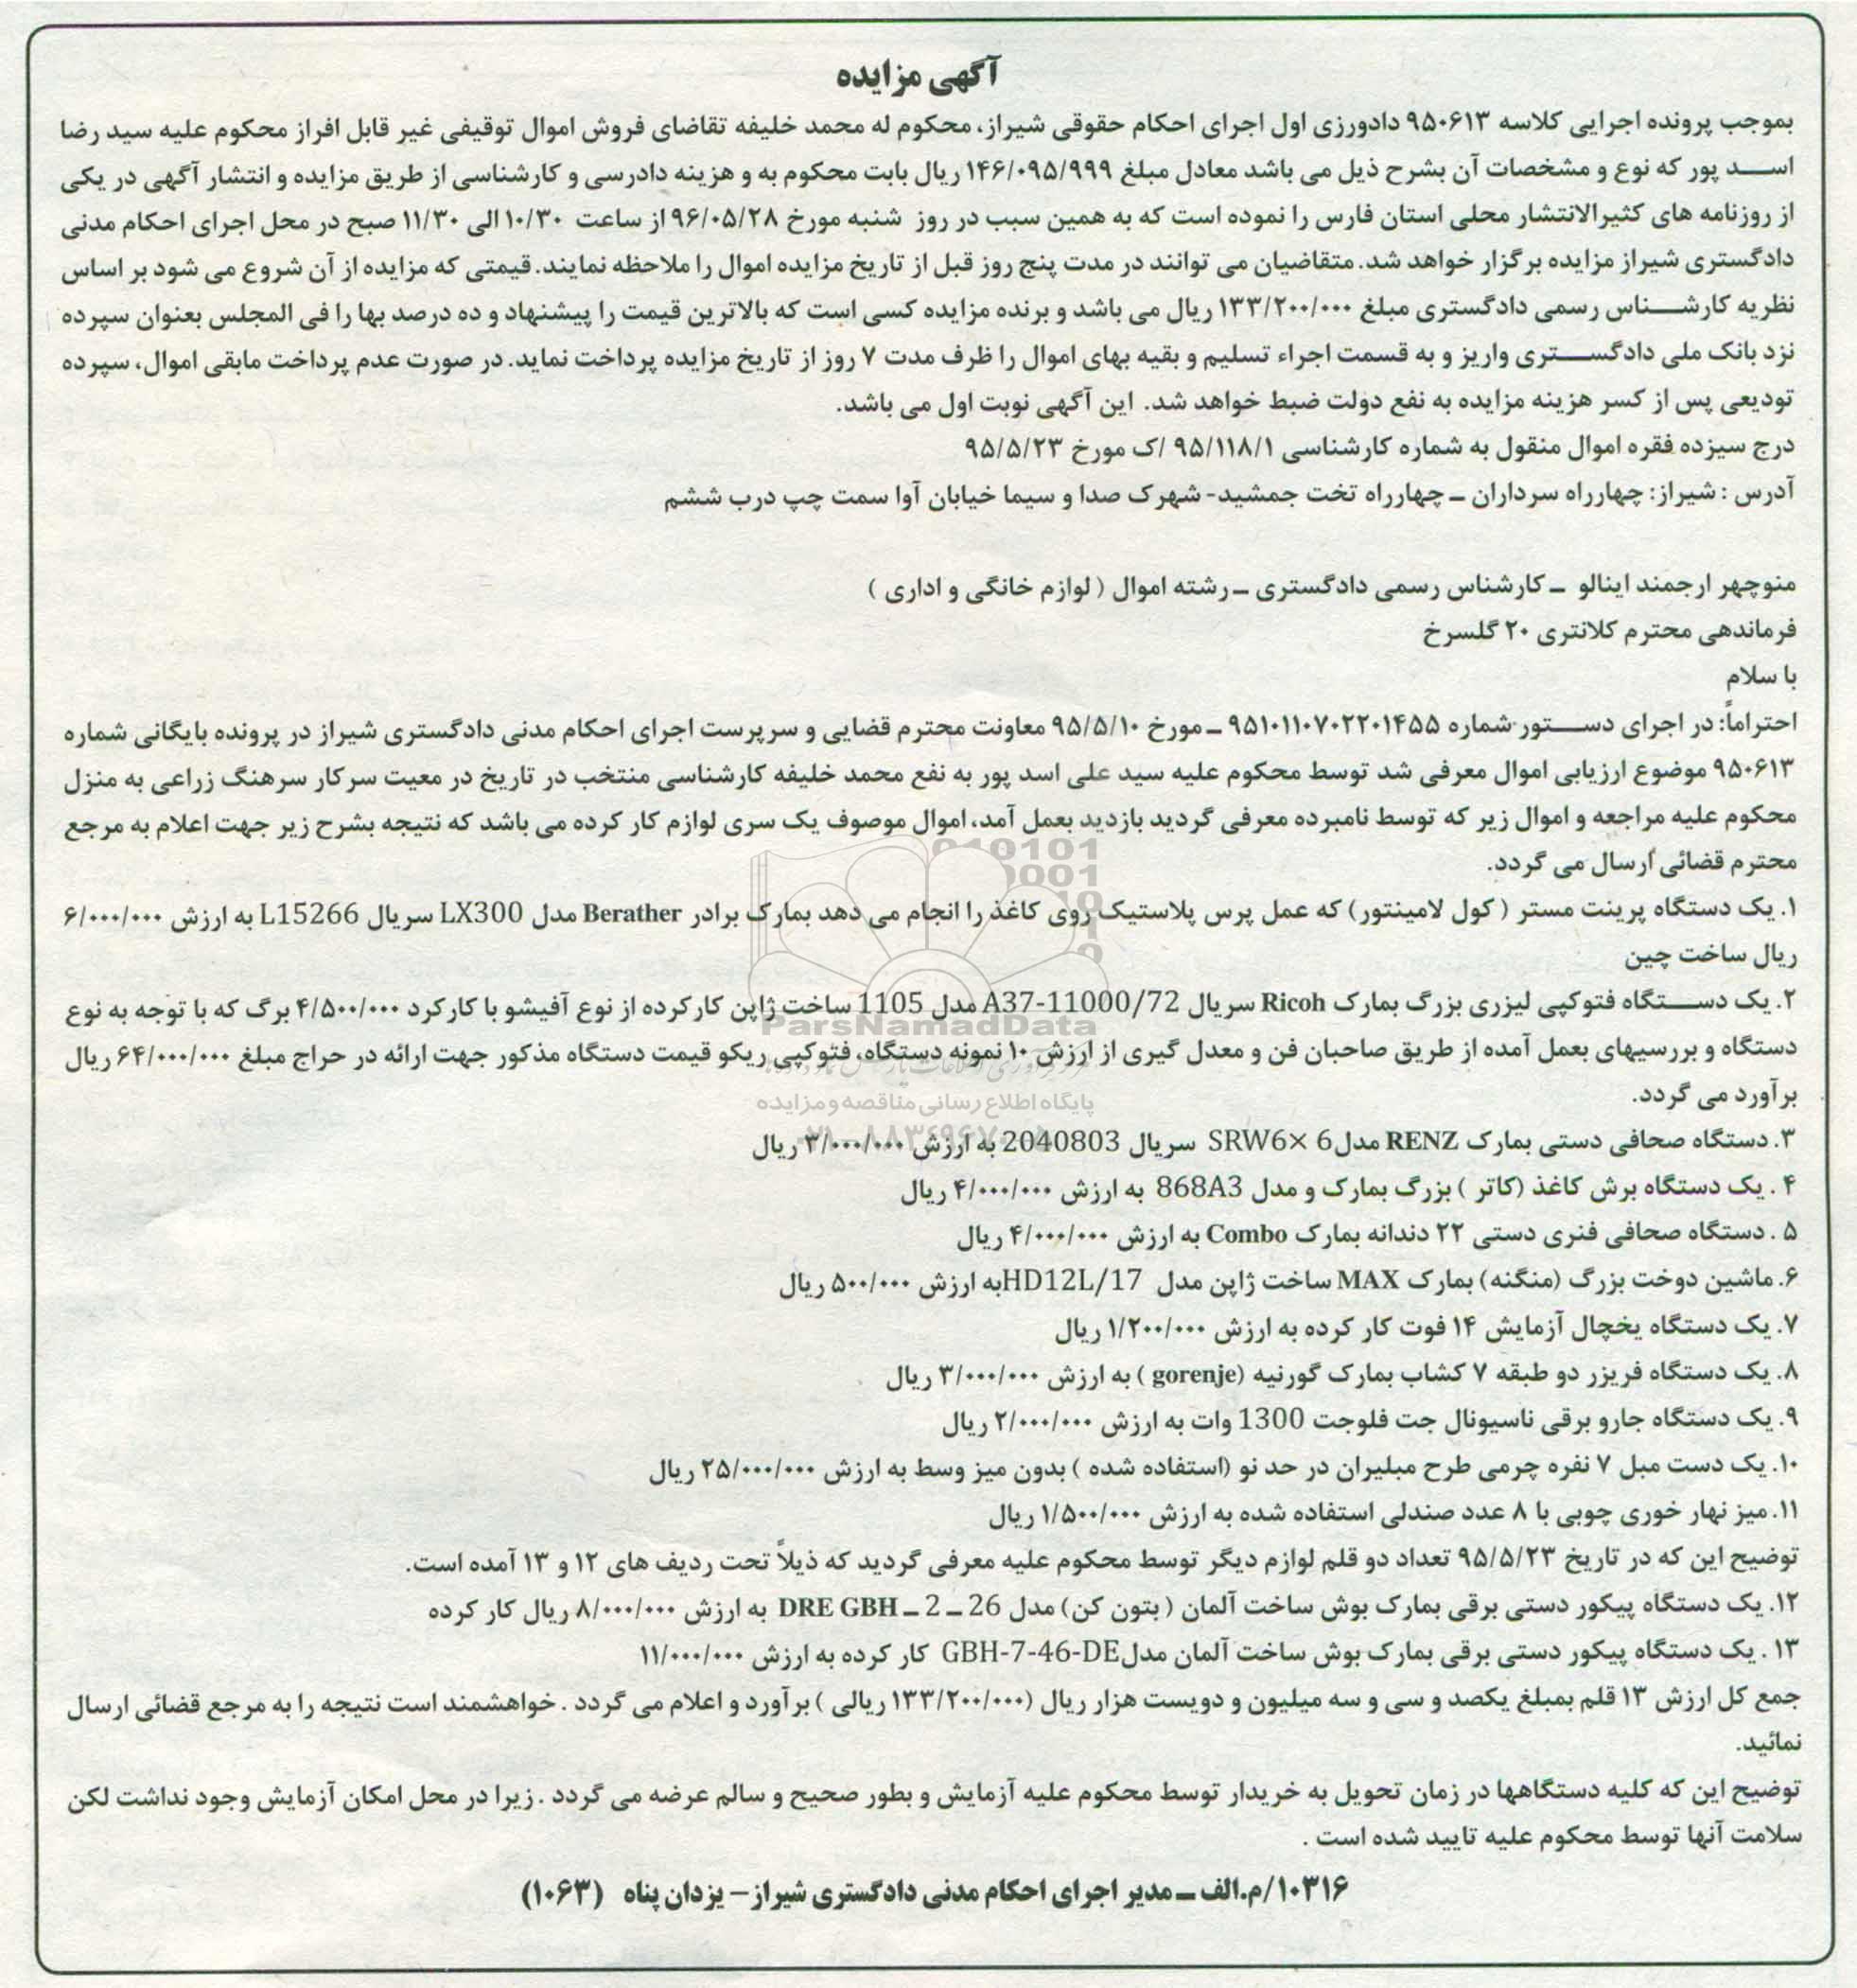 آگهی مزایده
بموجب پرونده اجرایی کلاسه ۹۵۰۶۱۳ دادورزی اول اجرای احکام حقوقی شیراز، محکوم له محمد خلیفه تقاضای فروش اموال توقیفی غیر قابل افراز محکوم علیه سید رضا
اسد پور که نوع و مشخصات آن بشرح ذیل می باشد معادل مبلغ ۱۴۶/۰۹۵/۹۹۹ ریال بابت محکوم به و هزینه دادرسی و کارشناسی از طریق مزایده و انتشار آگهی در یکی
از روزنامه های کثیرالانتشار محلی استان فارس را نموده است که به همین سبب در روز شنبه مورخ ۹۶/۰۵/۲۸ از ساعت ۱۰/۳۰ الی ۱۱/۳۰ صبح در محل اجرای احکام مدنی
دادگستری شیراز مزایده برگزار خواهد شد. متقاضیان می توانند در مدت پنج روز قبل از تاریخ مزایده اموال را ملاحظه نمایند. قیمتی که مزایده از آن شروع می شود بر اساس
نظریه کارشناس رسمی دادگستری مبلغ ۱۳۳/۲۰۰/۰۰۰ ریال می باشد و برنده مزایده کسی است که بالاترین قیمت را پیشنهاد و ده درصد بها را فی المجلس بعنوان سپرده
نزد بانک ملی دادگستری واریز و به قسمت اجراء تسلیم و بقیه بهای اموال را ظرف مدت ۷ روز از تاریخ مزایده پرداخت نماید. در صورت عدم پرداخت مابقی اموال، سپرده
تودیعی پس از کسر هزینه مزایده به نفع دولت ضبط خواهد شد. این آگهی نوبت اول می باشد.
درج سیزده فقره اموال منقول به شماره کارشناسی ۹۵/۱۱۸/۱ /ک مورخ ۹۵/۵/۲۳
آدرس : شیراز: چهارراه سرداران ـ چهارراه تخت جمشید- شهرک صدا و سیما خیابان آوا سمت چپ درب ششم
منوچهر ارجمند اینالو ـ کارشناس رسمی دادگستری ـ رشته اموال ( لوازم خانگی و اداری )
فرماندهی محترم کلانتری ۲۰ گلسرخ
با سلام
احتراماً: در اجرای دستور شماره ۹۵۱۰۱۱۰۷۰۲۲۰۱۴۵۵ ـ مورخ ۹۵/۵/۱۰ معاونت محترم قضایی و سرپرست اجرای احکام مدنی دادگستری شیراز در پرونده بایگانی شماره
۹۵۰۶۱۳ موضوع ارزیابی اموال معرفی شد توسط محکوم علیه سید علی اسد پور به نفع محمد خلیفه کارشناسی منتخب در تاریخ در معیت سرکار سرهنگ زراعی به منزل
محکوم علیه مراجعه و اموال زیر که توسط نامبرده معرفی گردید بازدید بعمل آمد، اموال موصوف یک سری لوازم کار کرده می باشد که نتیجه بشرح زیر جهت اعلام به مرجع
محترم قضائی ارسال می گردد.
۱. یک دستگاه پرینت مستر ( کول لامینتور) که عمل پرس پلاستیک روی کاغذ را انجام می دهد بمارک برادر Berather مدل LX300 سریال L15266 به ارزش ۶/۰۰۰/۰۰۰
ریال ساخت چین
۲. یک دستگاه فتوکپی لیزری بزرگ بمارک Ricoh سریال A37-11000/72 مدل 1105 ساخت ژاپن کارکرده از نوع آفیشو با کارکرد ۴/۵۰۰/۰۰۰ برگ که با توجه به نوع
دستگاه و بررسیهای بعمل آمده از طریق صاحبان فن و معدل گیری از ارزش ۱۰ نمونه دستگاه، فتوکپی ریکو قیمت دستگاه مذکور جهت ارائه در حراج مبلغ ۶۴/۰۰۰/۰۰۰ ریال
برآورد می گردد.
ParsNamadData
پایگاه اطلاع رسانی مناقصه و مزایده
۳. دستگاه صحافی دستی بمارک RENZ مدل SRW6× 6 سریال 2040803 به ارزش ۳/۰۰۰/۰۰۰ ریال
۴ . یک دستگاه برش کاغذ (کاتر ) بزرگ بمارک و مدل 868A3 به ارزش ۴/۰۰۰/۰۰۰ ریال
۵ . دستگاه صحافی فنری دستی ۲۲ دندانه بمارک Combo به ارزش ۴/۰۰۰/۰۰۰ ریال
۶. ماشین دوخت بزرگ (منگنه) بمارک MAX ساخت ژاپن مدل HD12L/17 به ارزش ۵۰۰/۰۰۰ ریال
۷. یک دستگاه یخچال آزمایش ۱۴ فوت کار کرده به ارزش ۱/۲۰۰/۰۰۰ ریال
۸. یک دستگاه فریزر دو طبقه ۷ کشاب بمارک گورنیه (gorenje ) به ارزش ۳/۰۰۰/۰۰۰ ریال
۹. یک دستگاه جارو برقی ناسیونال جت فلوجت 1300 وات به ارزش ۲/۰۰۰/۰۰۰ ریال
۱۰. یک دست مبل ۷ نفره چرمی طرح مبلیران در حد نو (استفاده شده ) بدون میز وسط به ارزش ۲۵/۰۰۰/۰۰۰ ریال
۱۱. میز نهار خوری چوبی با ۸ عدد صندلی استفاده شده به ارزش ۱/۵۰۰/۰۰۰ ریال
توضیح این که در تاریخ ۹۵/۵/۲۳ تعداد دو قلم لوازم دیگر توسط محکوم علیه معرفی گردید که ذیلاً تحت ردیف های ۱۲ و ۱۳ آمده است.
۱۲. یک دستگاه پیکور دستی برقی بمارک بوش ساخت آلمان ( بتون کن) مدل DRE GBH ـ 2 ـ 26 به ارزش ۸/۰۰۰/۰۰۰ ریال کار کرده
۱۳ . یک دستگاه پیکور دستی برقی بمارک بوش ساخت آلمان مدل GBH-7-46-DE کار کرده به ارزش ۱۱/۰۰۰/۰۰۰
جمع کل ارزش ۱۳ قلم بمبلغ یکصد و سی و سه میلیون و دویست هزار ریال (۱۳۳/۲۰۰/۰۰۰ ریالی ) برآورد و اعلام می گردد . خواهشمند است نتیجه را به مرجع قضائی ارسال
نمائید.
توضیح این که کلیه دستگاهها در زمان تحویل به خریدار توسط محکوم علیه آزمایش و بطور صحیح و سالم عرضه می گردد . زیرا در محل امکان آزمایش وجود نداشت لکن
سلامت آنها توسط محکوم علیه تایید شده است .
۱۰۳۱۶/م.الف ـ مدیر اجرای احکام مدنی دادگستری شیراز – یزدان پناه (۱۰۶۳)